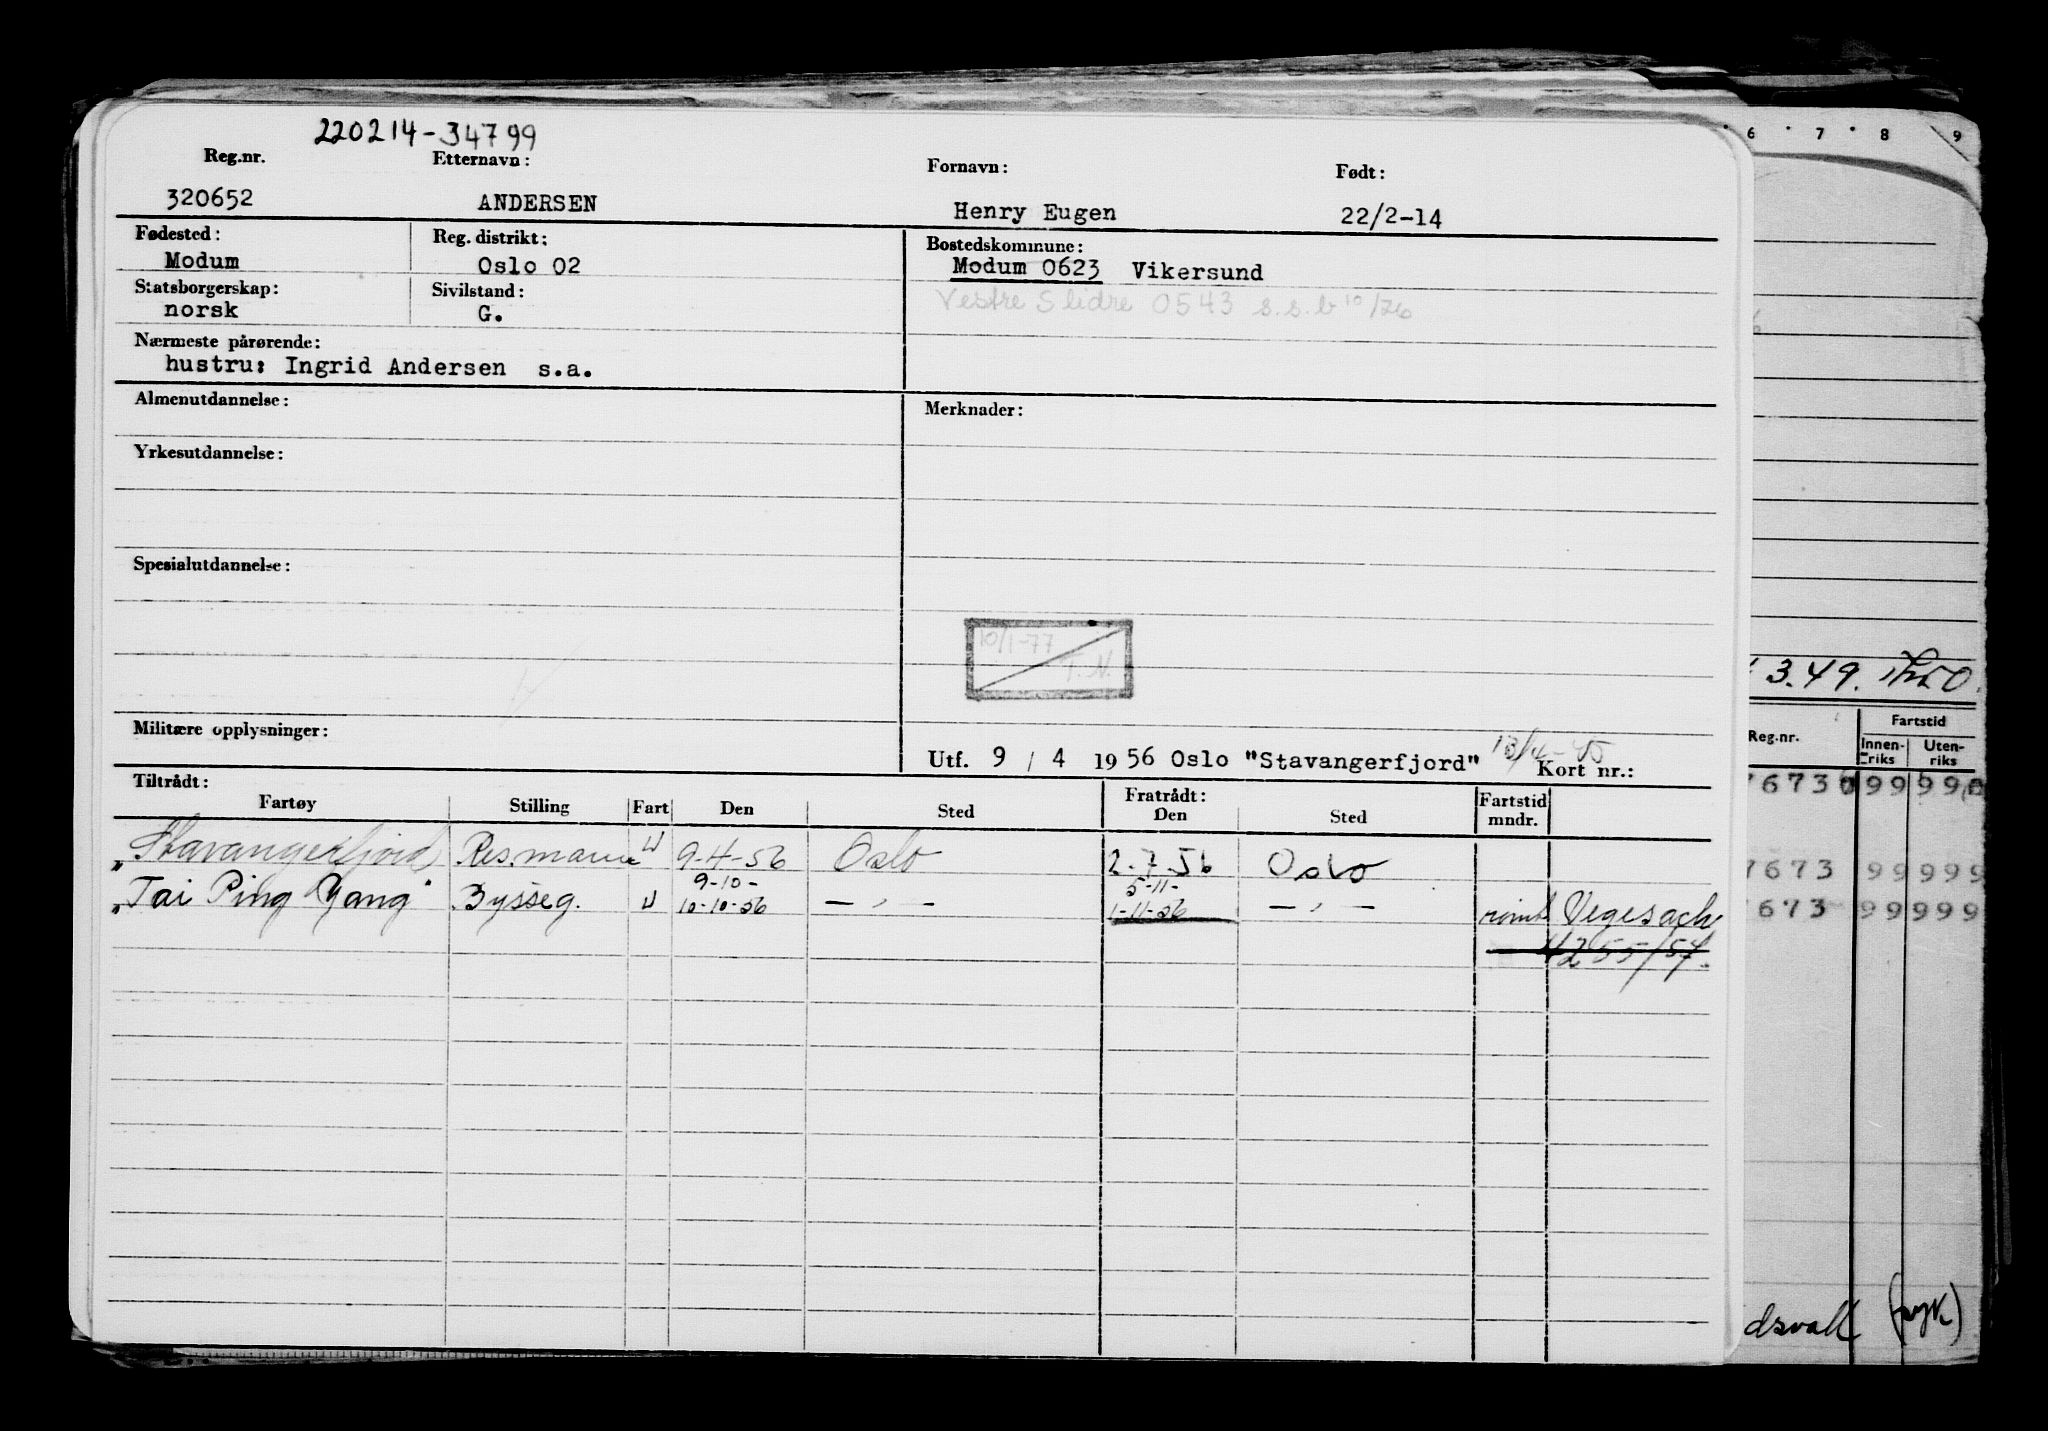 220214-34799
Reg.nr. Etternavn: Fornavn: Født:
320652 ANDERSEN Henry Eugen 22/2-14
Fødested: Reg. distrikt: Bostedskommune:
Modum Oslo 02 Modum 0623 Vikersund
Statsborgerskap: Sivilstand: Vestre Slidre 0543 s.s.b 10/76
norsk G.
Nærmeste pårørende:
hustru: Ingrid Andersen s.a.
Almenutdannelse: Merknader:
Yrkesutdannelse:
Spesialutdannelse:
10/1-77
T.N.
Militære opplysninger:
Utf. 9 / 4 1956 Oslo "Stavangerfjord" Kort nr.:
Tiltrådt: Fratrådt:
Fartøy Stilling Fart Den Sted Den Sted Fartstid mndr.
"Stavangerfjord" Res.mann U 9-4-56 Oslo 2-7-56 Oslo
9-10- 5-11-
"Tai Ping Yang" Bysseg. U 10-10-56 — " — 1-11-56 — " — Vegesack
4255/57.
6 7 8 9
3.49.
Reg.nr. Fartstid
Innen-riks Uten-riks
7673 99 999
7673 99 999
673 99 999
dsvall